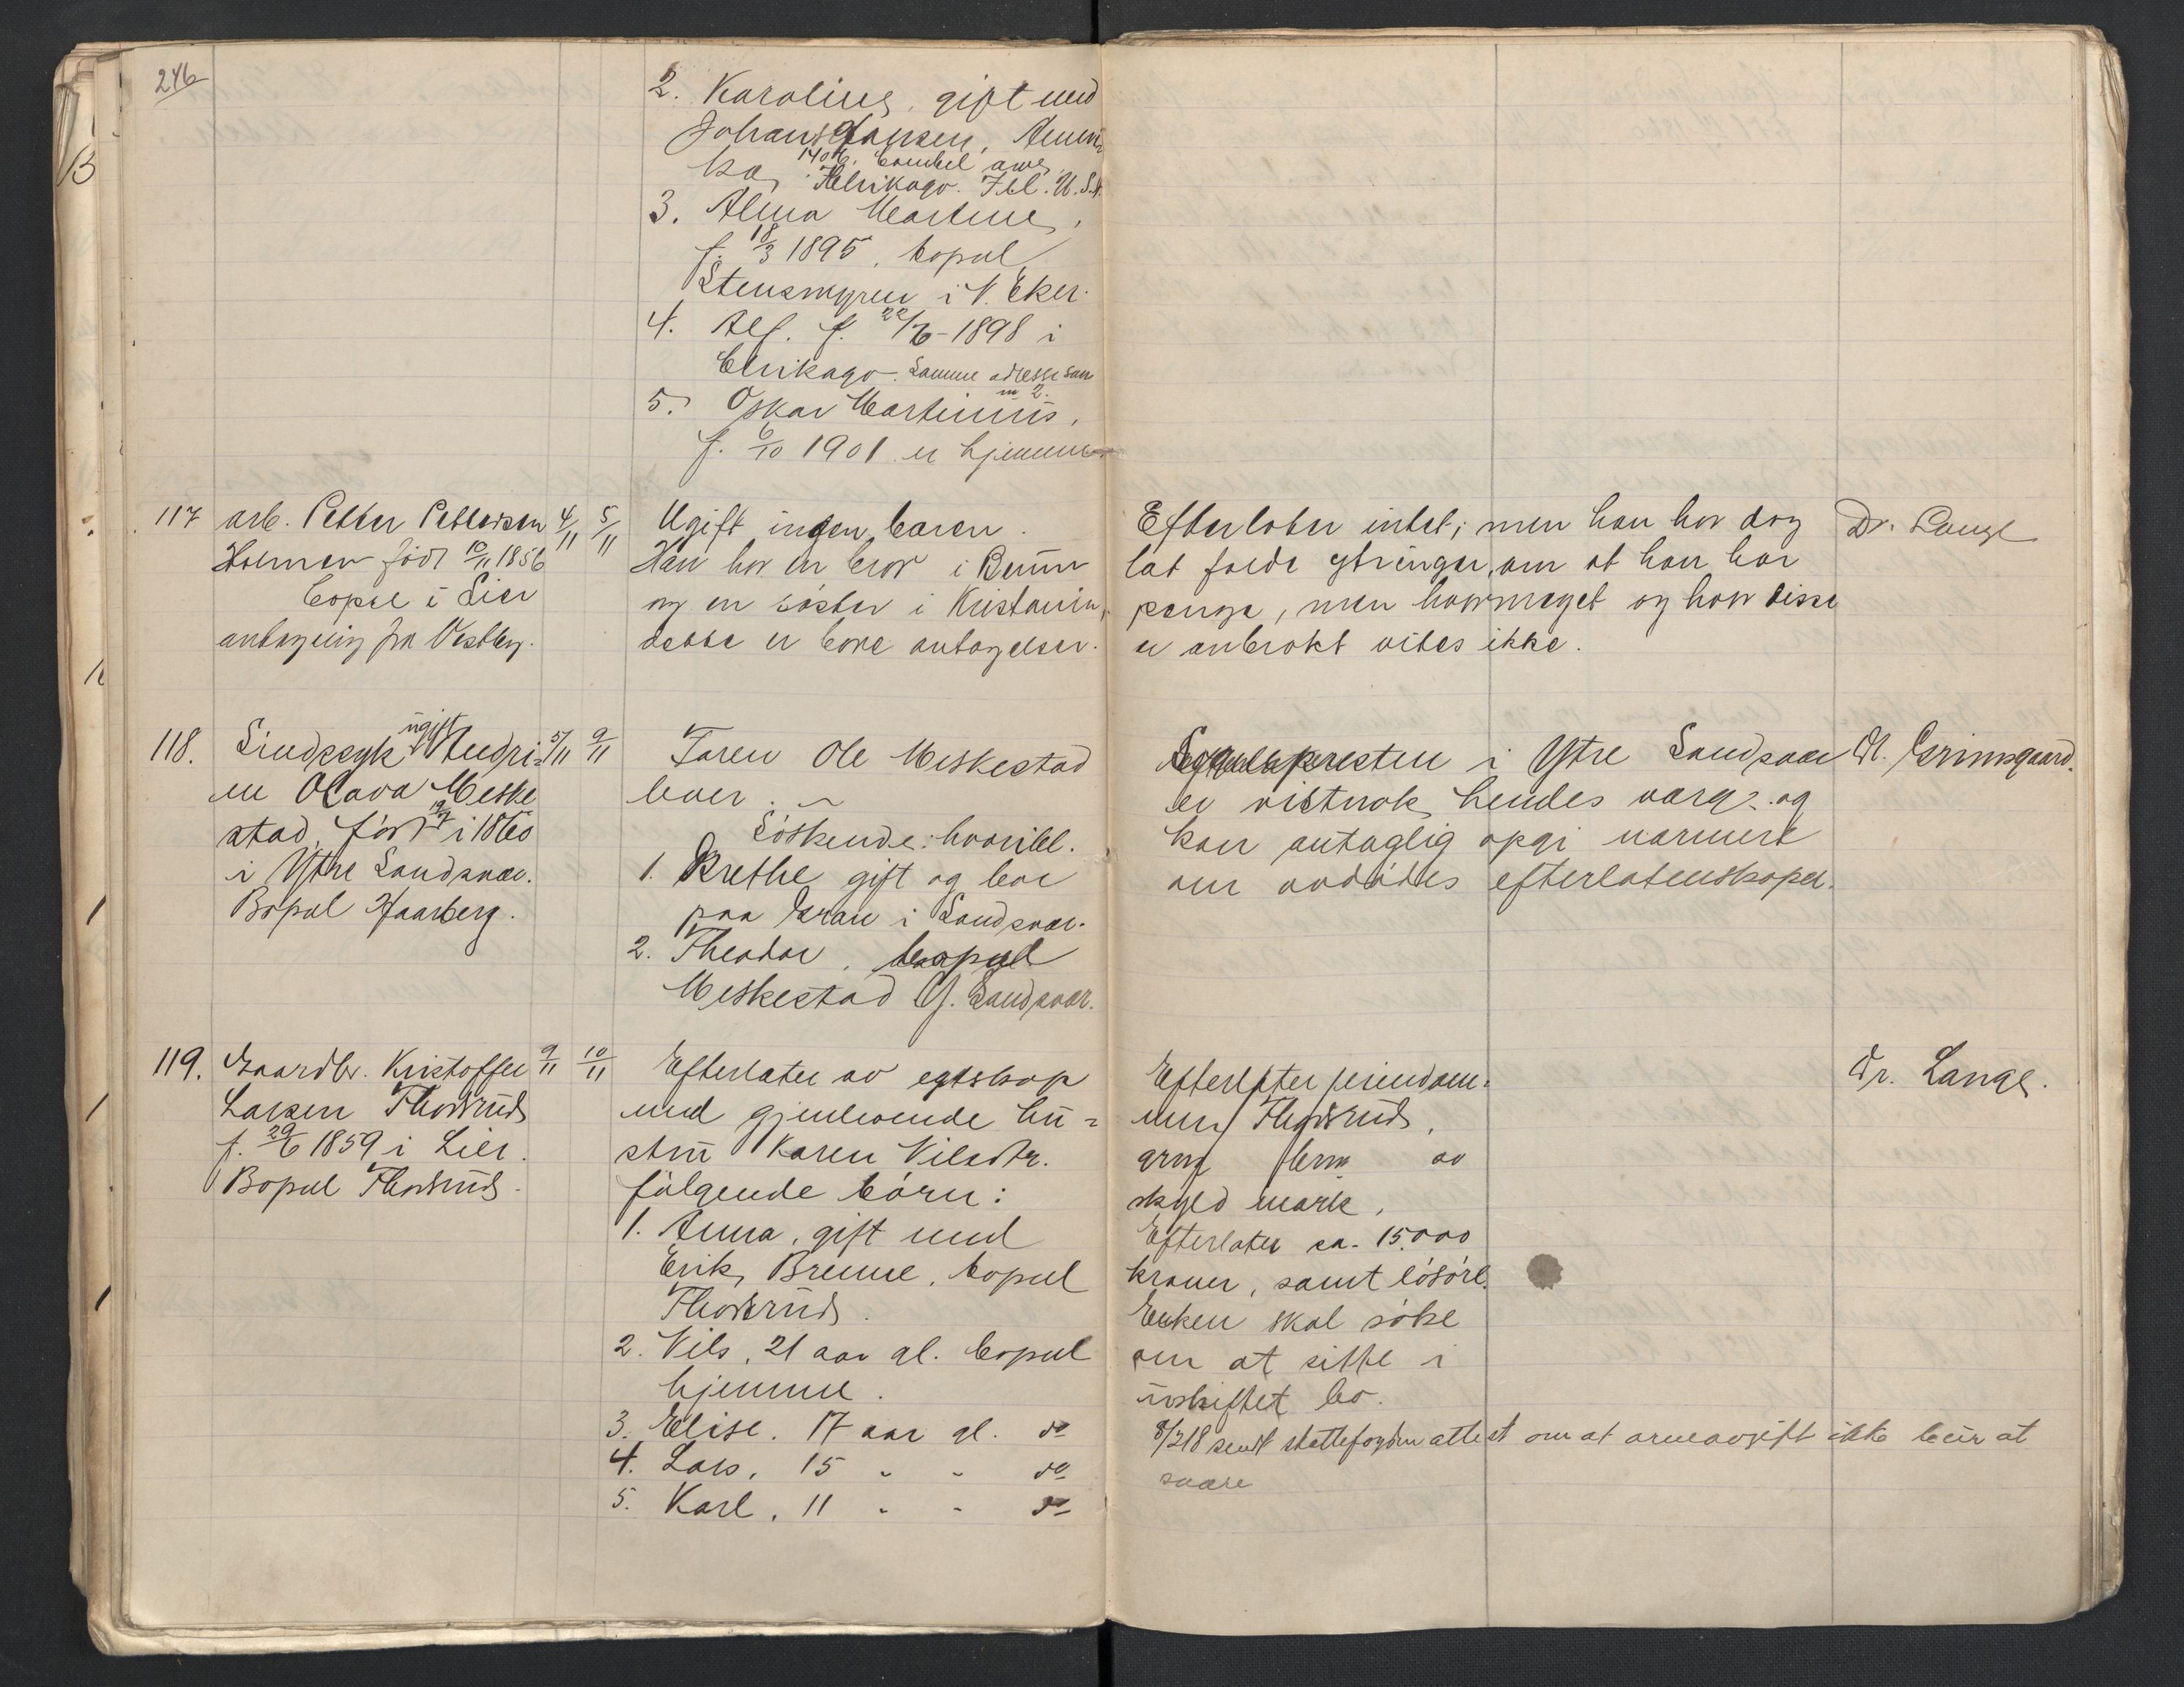 246
2. Karoline, gift med
Johans Hansen, Ameri
ka, 140 N.
Chikago. Ill. U.S.A.
3. Alma Martine,
f. 18/3 1895, bopæl
Stensmyren i N. Eker.
4. Alf. f. 22/6-1898 i
Chikago. Samme adresse som
nr 2.
5. Oskar Martinius,
f. 6/10 1901 er hjemme
117 arb. Petter Pettersen 4/11 5/11
Holmen født 10/11 1856
bopæl i Lier
antagelig fra Vestby.
Ugift ingen barn.
Han har en bror i Berum
og en søster i Kristiania,
dette er bare antagelser.
Efterlater intet; men han har dog
lat falde ytringer, om at han har
penge, men hvormeget og hvor disse
er anbrakt vites ikke.
Dr. Lange
118. Sindssyk ugift Andri= 5/11 9/11
ne Olava Meske
stad, født 19/7 i 1860
i Ytre Sandsvær.
Bopæl Haarberg.
Faren Ole Meskestad
lever.
Søskende: hvoribl.
1. Grethe gift og bor
paa Gran i Sandsvær.
2. Theodor, bopæl
Meskestad Y. Sandsvær.
Sognepresten i Ytre Sandsvær
er vistnok hendes værge og
kan antaglig opgi nærmere
om avdødes efterlatenskaper.
Dl. Grimsgaard.
119. Gaardbr. Kristoffer 9/11 10/11
Larsen Thorsrud
f. 29/6 1859 i Lier.
Bopæl Thorsrud.
Efterlater av egtskap
med gjenlevende hu=
stru Karen Nilsdtr.
følgende børn:
1. Anna, gift med
Erik Brenne, bopæl
Thorsrud.
2. Nils, 21 aar gl. bopæl
hjemme.
3. Elise. 17 aar gl. do
4. Lars, 15 " " do
5. Karl, 11 " " do
Efterlater eiendom-
men Thorsrud,
grnr brnr av
skyld mark,
Efterlater ca. 15.000
kroner, samt løsøre.
Enken skal søke
om at sitte i
uskiftet bo.
8/2 18 sendt skattefogden attest om at arveavgift ikke blir at
svare
Dr. Lange.